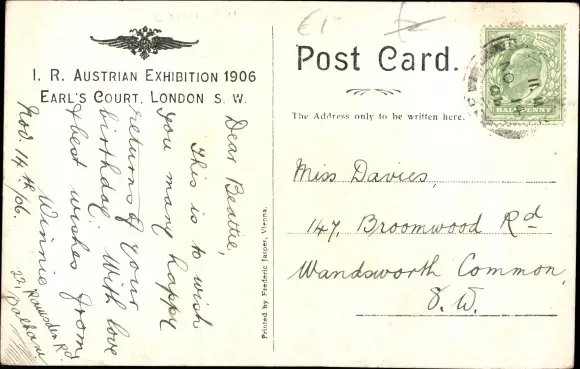 I. R. AUSTRIAN EXHIBITION 1906
EARL'S COURT, LONDON S. W.
Dear Beattie,
This is to wish
you many happy
returns of your
birthday. With love
& best wishes from
Winnie
Nov. 14th
/06.
Rd
Balham
Printed by Frederic Jasper, Vienna.
£1
Post Card.
The Address only to be written here.
Miss Davies,
147, Broomwood Rd
Wandsworth Common,
S. W.
HALFPENNY